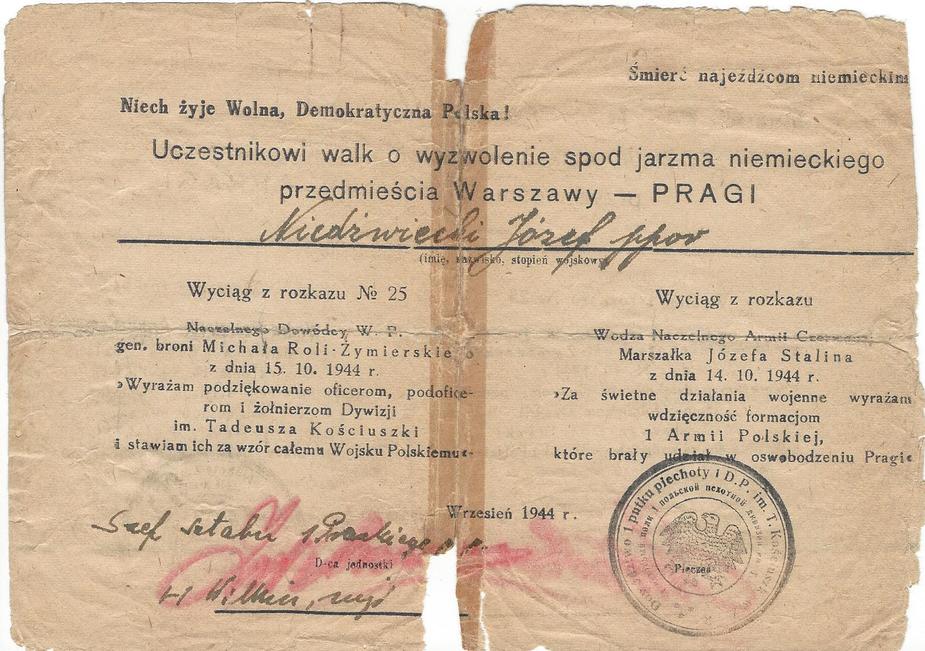 Śmierć najeźdźcom niemieckim
Niech żyje Wolna, Demokratyczna Polska!
Uczestnikowi walk o wyzwolenie spod jarzma niemieckiego
przedmieścia Warszawy — PRAGI
Niedźwiecki Józef ppor
(imię, nazwisko, stopień wojskowy)
Wyciąg z rozkazu № 25
Naczelnego Dowódcy W. P.
gen. broni Michała Roli-Żymierskiego
z dnia 15. 10. 1944 r.
»Wyrażam podziękowanie oficerom, podofice-
rom i żołnierzom Dywizji
im. Tadeusza Kościuszki
i stawiam ich za wzór całemu Wojsku Polskiemu«
Wyciąg z rozkazu
Wodza Naczelnego Armii Czerwonej
Marszałka Józefa Stalina
z dnia 14. 10. 1944 r.
»Za świetne działania wojenne wyrażam
wdzięczność formacjom
1 Armii Polskiej,
które brały udział w oswobodzeniu Pragi«
Wrzesień 1944 r.
Szef sztabu 1 Praskiego p.p.
D-ca jednostki
Pieczęć
Dowództwo 1 pułku piechoty 1 D.P. im. T. Kościuszki